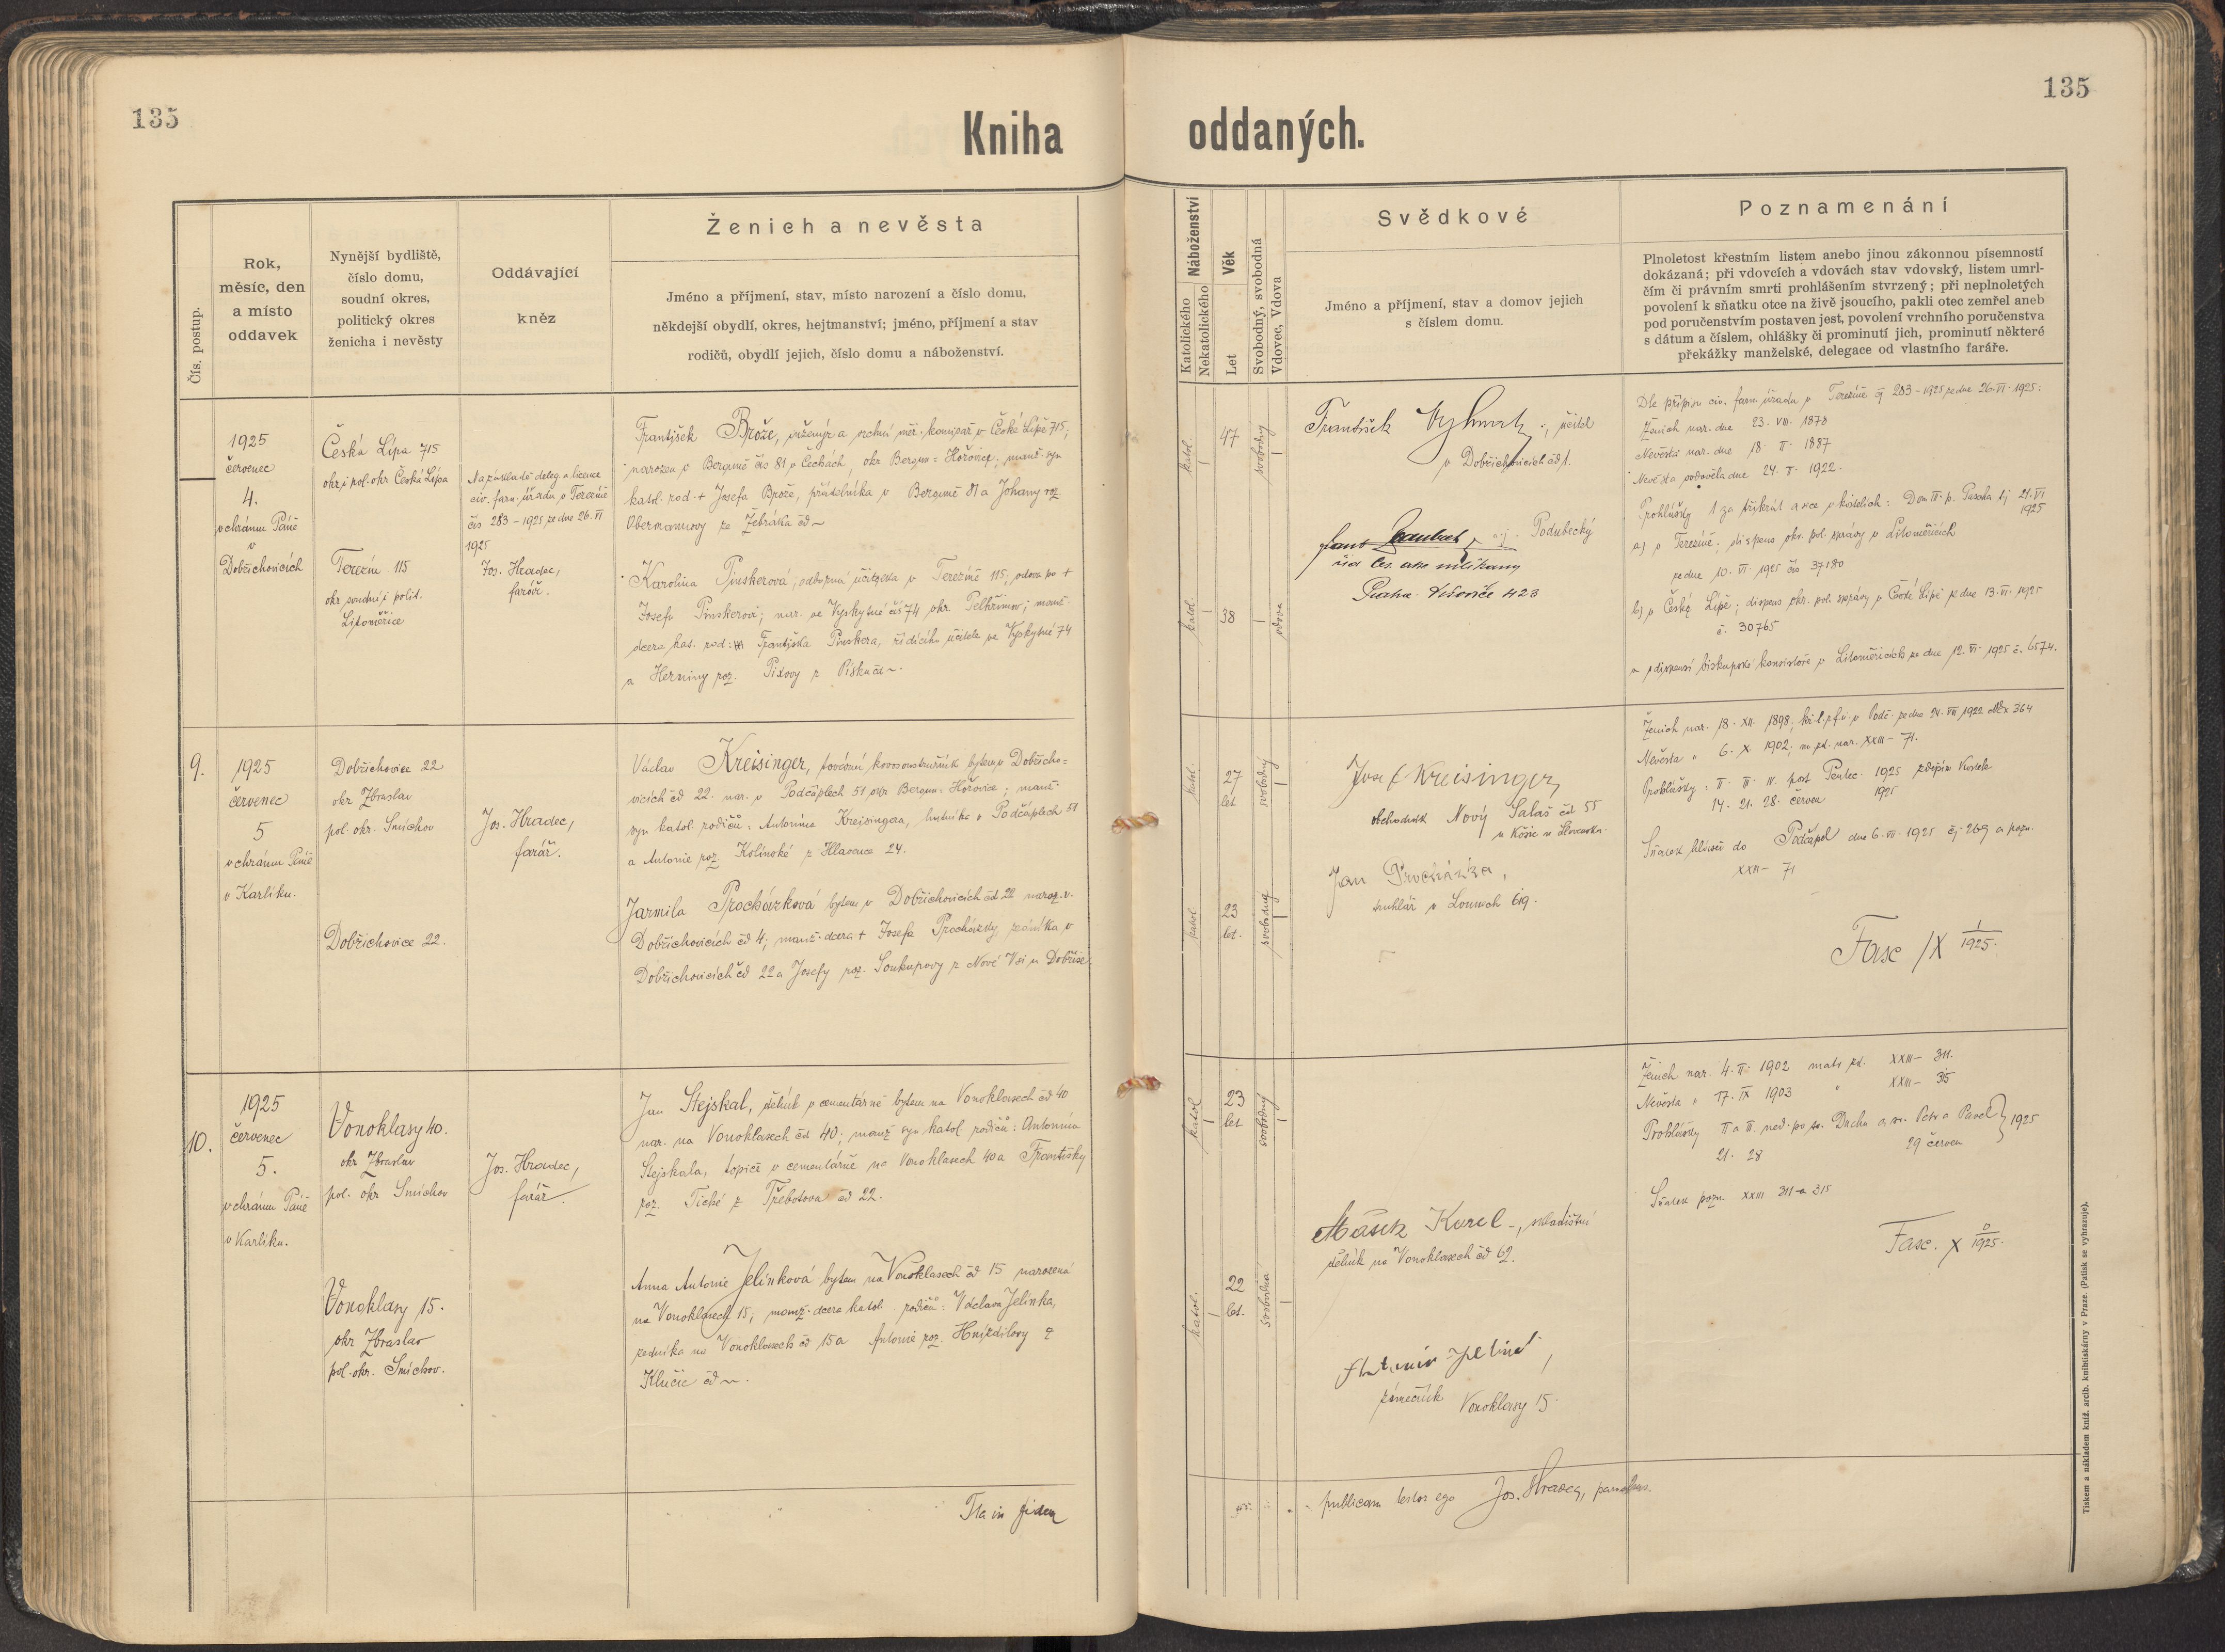 135
135
Kniha oddaných.
Čís. postup.
Rok,
měsíc, den
a místo
oddavek
Nynější bydliště,
číslo domu,
soudní okres,
politický okres
ženicha i nevěsty
Oddávající
kněz
Ženich a nevěsta
Jméno a příjmení, stav, místo narození a číslo domu,
někdejší obydlí, okres, hejtmanství; jméno, příjmení a stav
rodičů, obydlí jejich, číslo domu a náboženství.
Náboženství
Katolického
Nekatolického
Věk
Let
Svobodný, svobodná
Vdovec, Vdova
Svědkové
Jméno a příjmení, stav a domov jejich
s číslem domu.
Poznamenání
Plnoletost křestním listem anebo jinou zákonnou písemností
dokázaná; při vdovcích a vdovách stav vdovský, listem umrl-
čím či právním smrti prohlášením stvrzený; při neplnoletých
povolení k sňatku otce na živě jsoucího, pakli otec zemřel aneb
pod poručenstvím postaven jest, povolení vrchního poručenstva
s dátum a číslem, ohlášky či prominutí jich, prominutí některé
překážky manželské, delegace od vlastního faráře.
1925
červenec
4.
v chrámu Páně
v
Dobřichovicích
Česká Lípa 715
okr. i pol. okr Česká Lípa
Terezín 115
okr soudní i polit.
Litoměřice
Na základě deleg. a licence
civ. farn. úřadu v Terezíně
čís 283 - 1925 ze dne 26. VI
1925
Jos. Hradec,
farář.
František Brože, inženýr a vrchní měř. komisař v České Lípě 715;
narozen v Berouně čís 81 v Čechách, okr Beroun = Hořovice; manž. syn
katol. rod. + Josefa Brože, v Berouně 81 a Johany roz
Obermannovy ze Žebráka čd ~
Karolina Pinskerová; odborná učitelka v Terezíně 115; vdova po +
Josefu Pinskerovi; nar. ve Vyskytné čís 74 okr. Pelhřimov; manž.
dcera kat. rod: Františka Pinskera, řídícího učitele ve Vyskytné 74
a Herminy roz. z Písku čd ~.
katol.
47
svobodný
katol.
38
vdova
František ; učitel
v Dobřichovicích čd 1.
Podubecký
Praha 423
Dle přípisu civ. farn. úřadu v Terezíně čj 283 - 1925 ze dne 26. VI. 1925:
Ženich nar. dne 23. VIII. 1878
Nevěsta nar. dne 18. II. 1887
Nevěsta ovdověla dne 24. V. 1922.
Prohlášky 1 za třikrát a sice v kostelích: Dom III. p. Pascha tj 21. VI
1925
a) v Terezíně; dispens okr. pol. správy v Litoměřicích
ze dne 10. VI. 1925 čís 37180
b) v České Lípě; dispens okr. pol. správy v České Lípě ze dne 13. VI. 1925
č. 30765
a z dispensí biskupské konsistoře v Litoměřicích ze dne 12. VI. 1925 č. 6574.
9.
1925
červenec
5
v chrámu Páně
v Karlíku.
Dobřichovice 22
okr Zbraslav
pol. okr. Smíchov
Dobřichovice 22.
Jos. Hradec,
farář.
Václav Kreisinger, tovární bytem v Dobřicho=
vicích čd 22. nar. v Podčáplech 51 okr Beroun = Hořovice; manž.
syn katol. rodičů: Antonína Kreisingra, hutníka v Podčáplech 51
a Antonie roz Kolínské z Hlavence 24.
Jarmila Procházková bytem v Dobřichovicích čd 22 naroz. v
Dobřichovicích čd 4; manž. dcera + Josefa Procházky, v
Dobřichovicích čd 22 a Josefy roz. Soukupovy z Nové Vsi u Dobříše
katol.
27
let
svobodný
katol
23
let.
svobodná
Josef Kreisinger,
obchodník Nový Salaš čd 55
u Košic na Slovensku.
Jan Procházka,
truhlář v Lounech 619.
Ženich nar. 18. XII. 1898; ze dne 24. VII 1922 364
Nevěsta " 6. X. 1902; m. zd. nar. XXIII - 71.
Prohlášky: II. III. IV. post Pentec. 1925
14. 21. 28. červen 1925
Sňatek hlášen do Podčápel dne 6. VII. 1925 čj. 269 a pozn.
XXII - 71
Fasc IX 1/1925.
10.
1925
červenec
5.
v chrámu Páně
v Karlíku.
Vonoklasy 40.
okr Zbraslav
pol. okr Smíchov
Vonoklasy 15.
okr Zbraslav
pol. okr. Smíchov.
Jos. Hradec,
farář
Jan Stejskal, dělník v cementárně bytem na Vonoklasech čd 40
nar. na Vonoklasech čd 40; manž syn katol rodičů: Antonína
Stejskala, topiče v cementárně na Vonoklasech 40 a Františky
roz. Tiché z Třebotova čd 22.
Anna Antonie Jelínková bytem na Vonoklasech čd 15 narozená
na Vonoklasech 15; manž. dcera katol rodičů: Václava Jelínka,
zedníka na Vonoklasech čd 15 a Antonie roz. Hnízdilovy z
Klučic čd ~.
katol
23
let
svobodný
katol.
22
let.
svobodná
Mašek Karel, skladištní
dělník na Vonoklasech čd 62.
Antonín Jelínek,
zámečník Vonoklasy 15.
Ženich nar. 4. II. 1902 matr zd. XXIII - 311.
Nevěsta " 17. IX 1903 " XXIII - 315
Prohlášky II a III ned. po sv. Duchu a sv. Petr a Pavel } 1925
21. 28 29 červen
Sňatek pozn. XXIII 311 a 315
Fasc. X 1925.
Ita in fidem
publicam testor ego Jos. Hradec, parochus.
Tiskem a nákladem kníž. arcib. knihtiskárny v Praze. (Patisk se vyhrazuje).